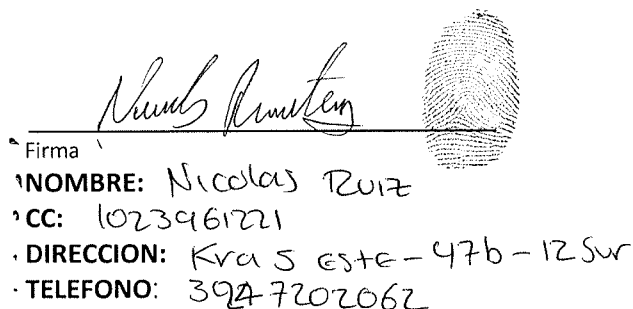 Firma
NOMBRE: Nicolas Ruiz
CC: 1023961221
DIRECCION: Kra 5 Este - 47b - 12 Sur
TELEFONO: